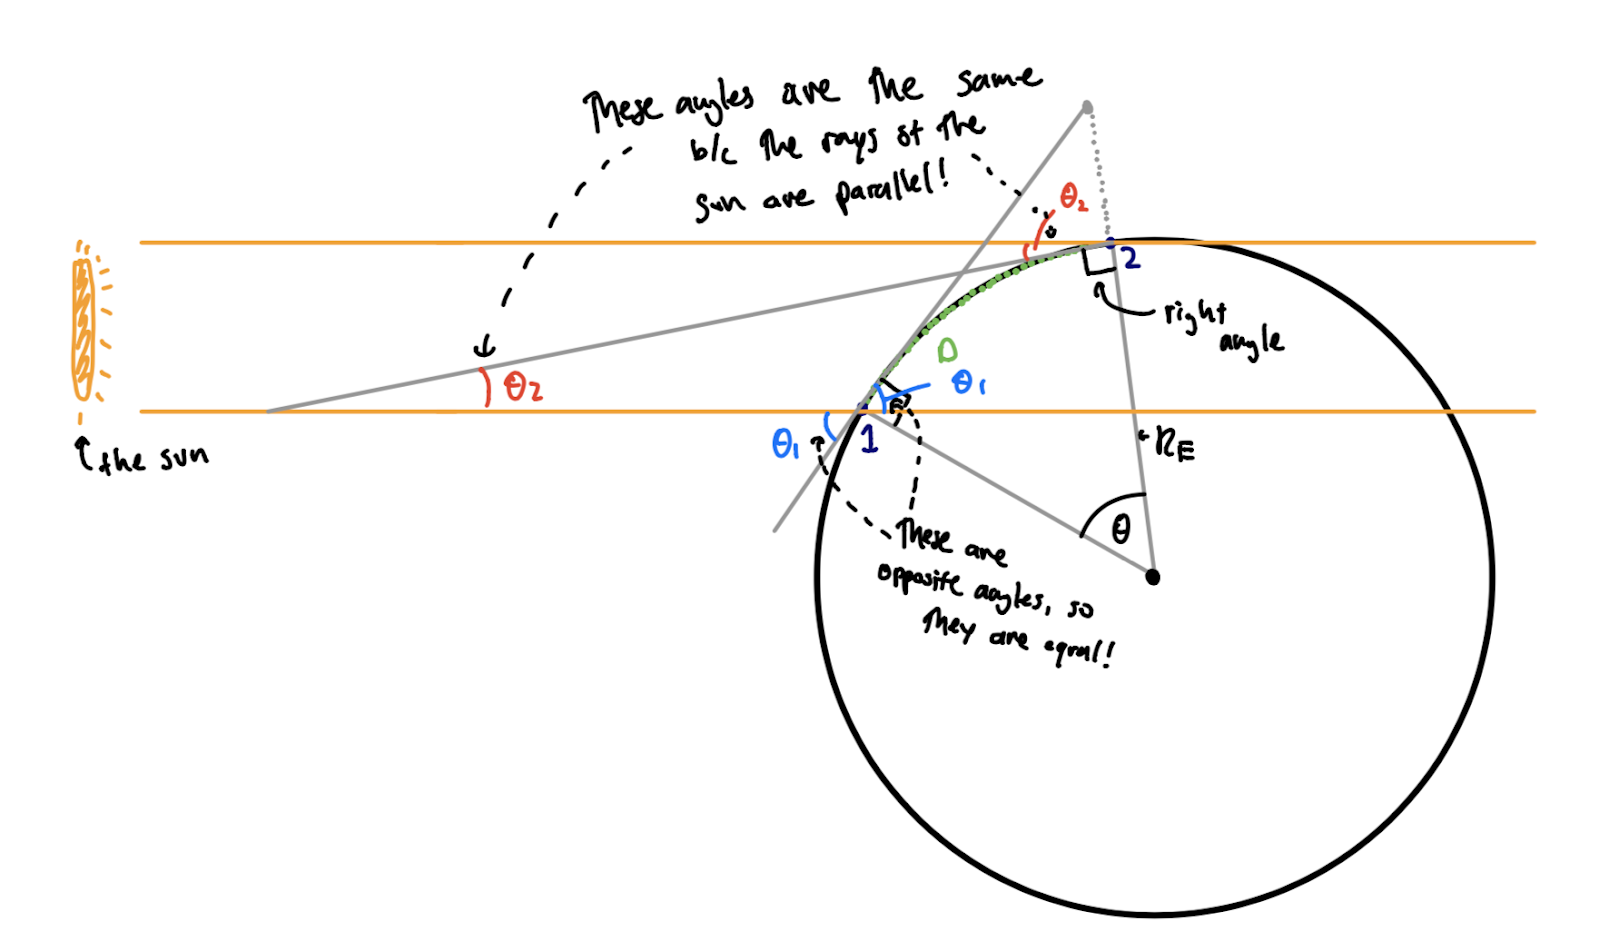 These angles are the same
b/c the rays of the
sun are parallel!
θ₂
2
right
angle
D
θ₁
θ₂
θ₁
1
R_E
the sun
θ
These are
opposite angles, so
they are equal!